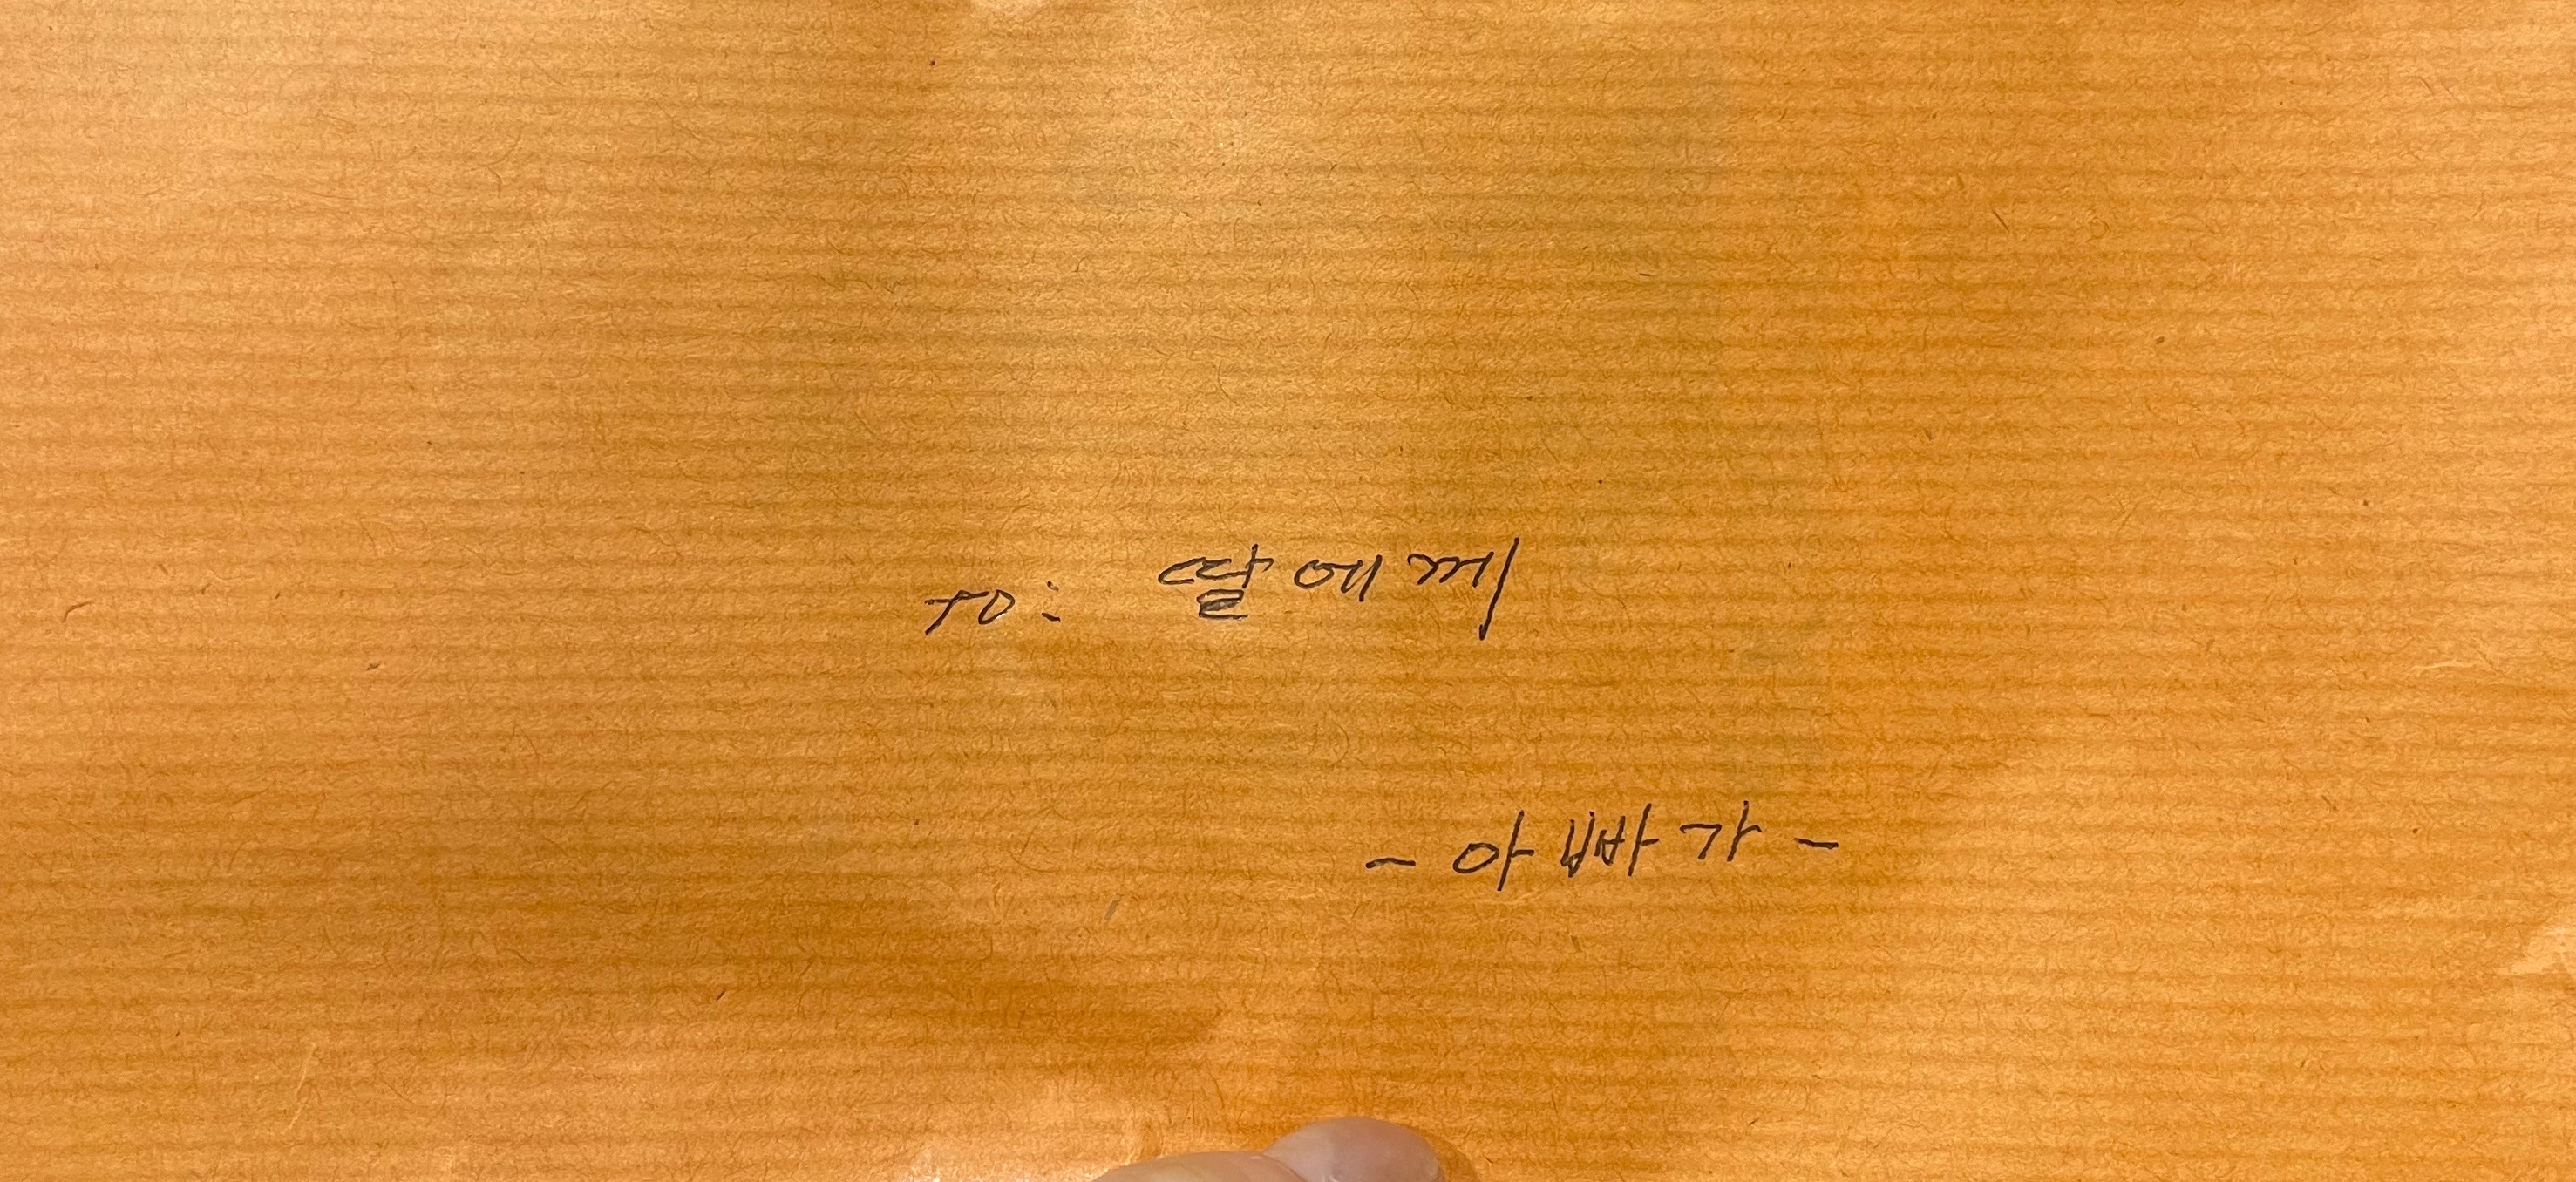 TO: 딸에께
- 아빠가 -